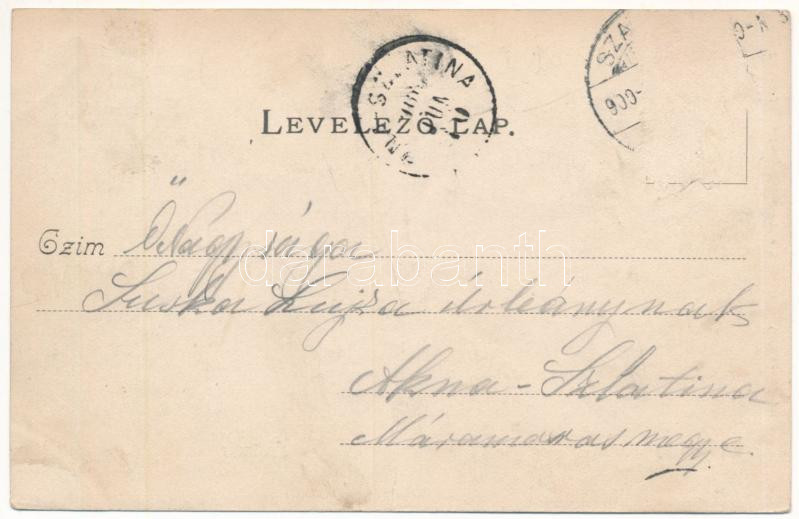 SZLATINA
SZA
900-
LEVELEZŐ-LAP.
Czim Ő Nagysága
Luska Lujza úrleánynak
Akna-Szlatina
Máramaros megye.
darabanth